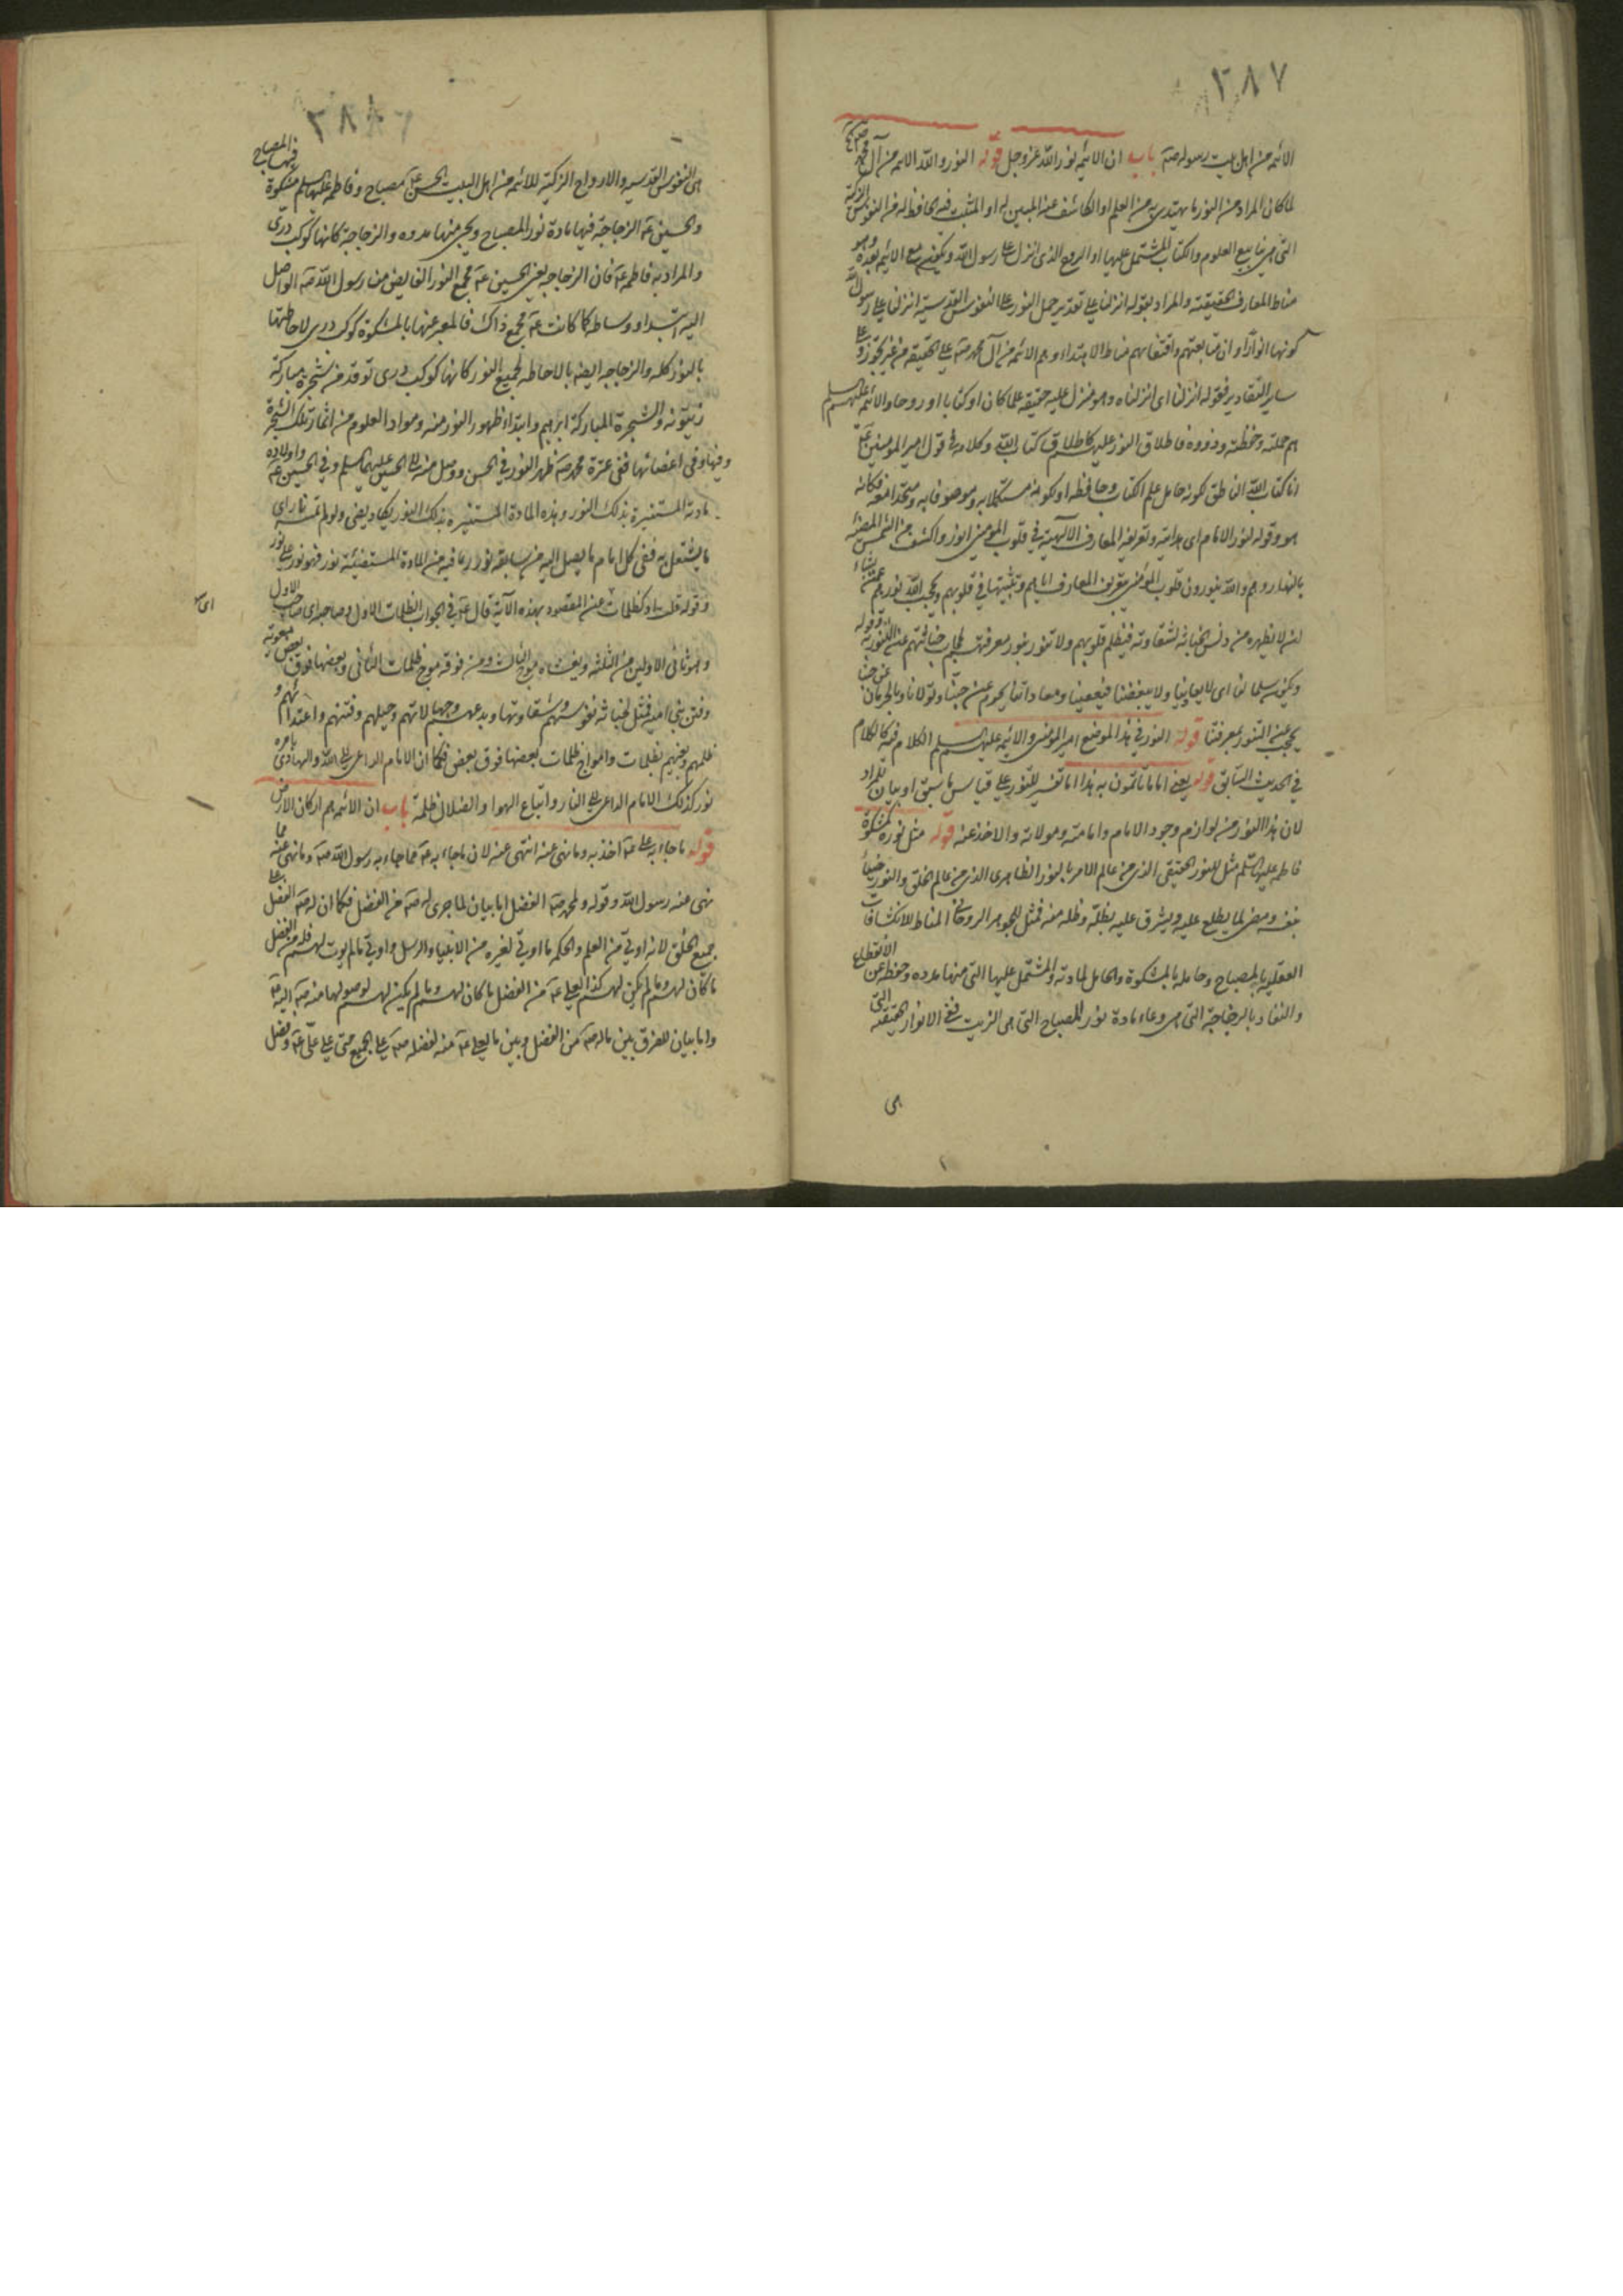 ٢٨٧
الائمة من اهل بيت رسوله صه باب ان الائمه نور الله عز وجل قوله النور والله الائمه من آل محمد
لما كان المراد من النور ما يهتدى به من العلم او الكاشف عنه المبين له او المثبت فيه الحافظ له من النفوس الزكية
التي هي ينابيع العلوم والكتاب المشتمل عليها او الروح الذى انزل على رسول الله ويكون مع الائمه بعده وهو
مناط المعارف الحقيقية والمراد بقوله انزلنا على تقدير حمل النور على النفوس القدسية انزلنا على رسول الله
كونها انوارا وان متابعتهم واقتفائهم مناط الاهتداء وهم الائمه من آل محمد صه على الحقيقه من غير تجوز وعلى
ساير التقادير فقوله انزلنا اى انزلناه وهو منزل عليه حقيقه علما كان او كتابا او روحا والائمه عليهم السلم
هم حملته وحفظته وذووه فاطلاق النور عليهم كاطلاق كتاب الله وكلامه في قول امير المومنين عه
انا كتاب الله الناطق لكونه حامل علم الكتاب وحافظه او لكونه مستكملا به وموصوفا به ومتحدا معه فكانه
هو وقوله لنور الامام اى هدايته وتعريفه المعارف الالهيه في قلوب المومنين انور واكشف من الشمس المضيئه
بالنهار وهم والله ينورون قلوب المومنين بتعريف المعارف اياهم وتثبيتها في قلوبهم ويحجب الله نورهم عمن يشاء
لئلا يطهره من دنس الخباثه لشقاوته فيظلم قلوبهم ولا تنور بنور معرفتهم لحجاب خباثتهم عند النور وقوله
ويكون سلما لنا اى لا يعاديا ولا يبغضنا فبغضنا ومعاداتنا يحرم عن حبنا وتولانا وبالحرمان عن حبنا
يحجب عنه التنور بمعرفتنا قوله النور في هذا الموضع امير المومنين والائمه عليهم السلم الكلام فيه كالكلام
في الحديث السابق قوله يعنى اماما تاتمون به هذا اما تفسير للنور على قياس ما سبق او بيان للمراد
لان هذا النور من لوازم وجود الامام وامامته ومولاته والاخذ عنه قوله مثل نوره كمشكوة
فاطمه عليها السلم مثل للنور الحقيقى الذى من عالم الامر بالنور الظاهرى الذى من عالم الخلق والنور ضياء
بنفسه ومضئ لما يطلع عليه ويشرق عليه بظله وظله منه فمثل للجوهر الروحانى المناط للانكشافات
العقليه بالمصباح وحامله بالمشكوة والحامل لمادته والمشتمل عليها التى منها مدده وحفظه عن الانقطاع
والنفاد بالزجاجة التى هى وعاء مادة نور المصباح التى هى الزيت ففى الانوار الحقيقيه التى
هى
٢٨٨
هى النفوس القدسيه والارواح الزكية للائمه من اهل البيت الحسن عه مصباح وفاطمه عليها السلم مشكوة فيها المصباح
والحسين عه الزجاجة فيها مادة نور المصباح ويجئ منها مدده والزجاجة كانها كوكب درى
والمراد به فاطمه عه فان الزجاجه يعنى الحسين عه مجمع النور الفايض من رسول الله صه الواصل
اليه ابتداء ووساطه كما كانت عه مجمع ذاك فالمعبر عنها بالمشكوة كوكب درى لاحاطتها
بالنور كله والزجاجه ايضه بالاحاطه لجميع النور كانها كوكب درى توقد من شجرة مباركة
زيتونه والشجرة المباركة ابرهيم وابتداء ظهور النور منه ومواد العلوم من اثمار تلك الشجرة
وفيها وفى اغصانها ففى عترة محمد صه ظهر النور في الحسن ووصل منه الى الحسين عليهما السلم وفي الحسين عه واولاده
مادته المستنيرة بذلك النور وهذه المادة المستنيره بذلك النور يكاد يضئ ولو لم تمسسه نار اى
ما يشتعل به ففى كل امام ما يصل اليه من سابقه نور وما فيه من المادة المستضيئه نور فهو نور على نور
وقوله قلت او كظلمات عن المقصود بهذه الآية قال عه في الجواب الظلمات الاول وصاحبه اى صاحب الاول
اى
وهو ثانى الاولين من الثلثه ويغشاه موج الثالث ومن فوقه موج ظلمات الثانى وبعضها فوق بعض معوية
وفتن بنى اميه فمثل لخباثه نفوسهم وشقاوتها وبدعهم وجهالاتهم وحيلهم وفتنهم واعتدائهم و
ظلمهم وبغيهم بظلمات وامواج ظلمات بعضها فوق بعض فكما ان الامام الداعى الى الله والهادى بامره
نور كذلك الامام الداعى الى النار واتباع الهوا والضلال ظلمه باب ان الائمه هم اركان الارض
قوله ما جاء به على عه آخذ به وما نهى عنه انتهى عنه لان ما جاء به عه مما جاء به رسول الله صه وما نهى عنه مما
نهى عنه رسول الله وقوله ولمحمد صه الفضل اما بيان لما جرى له صه من الفضل فكما ان له صه الفضل على
جميع الخلق لانه اوتى من العلم والحكمه ما اوتى لغيره من الانبياء والرسل واوتى ما لم يوت لهم فله من الفضل
ما كان لهم وما لم يكن لهم كذا لعلى عه من الفضل ما كان لهم وما لم يكن لهم لوصولها منه صه اليه عه
واما بيان للفرق بين ماله صه من الفضل وبين ما لعلى عه منه لفضله صه على الجميع حتى على على عه وفضل